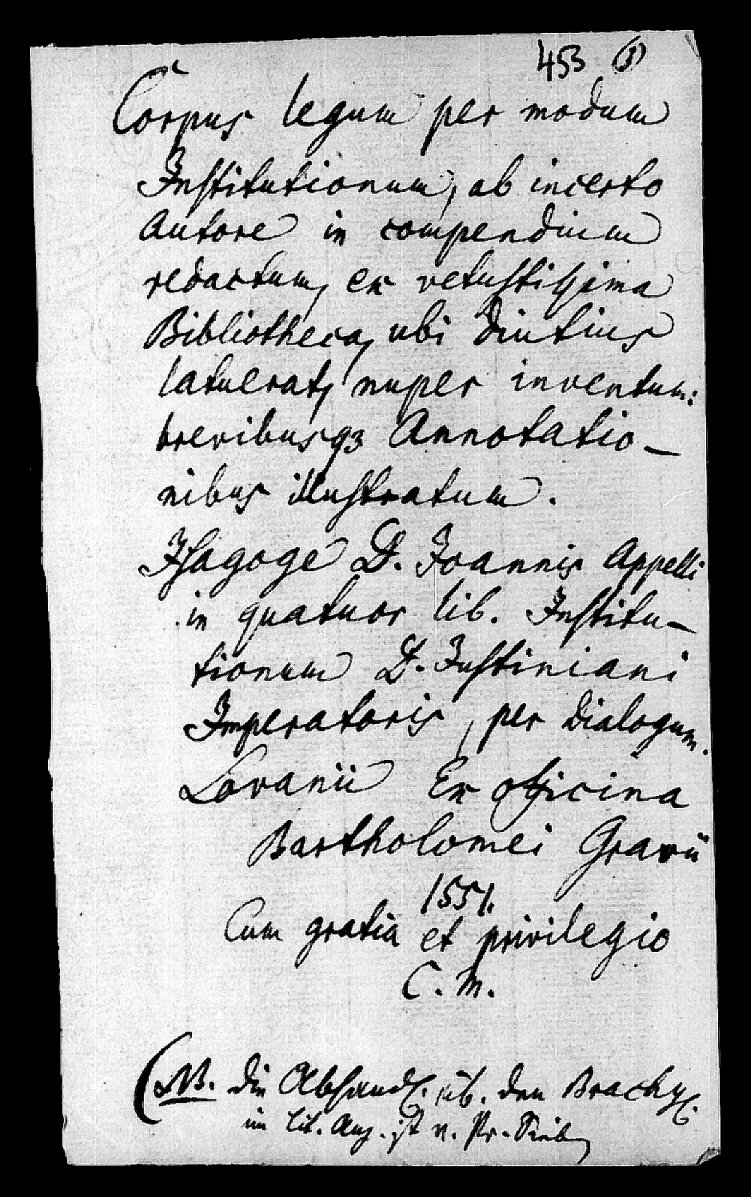 453 (8)
Corpus legum per modum
Institutionum, ab incerto
Autore in compendium
redactum, ex vetustissima
Bibliotheca, ubi diutius
latuerat, nuper inventum:
brevibusqȝ Annotatio-
nibus illustratum.
Isagoge D. Joannis Appelli
in quatuor lib. Institu-
tionum D. Justiniani
Imperatoris, per dialogum.
Lovanii Ex officina
Bartholomei Gravii
1551.
Cum gratia et privilegio
C. M.
(NB. die Abhandl. üb. den Brachyl.
im Lit. Anz. ist v. Pr.